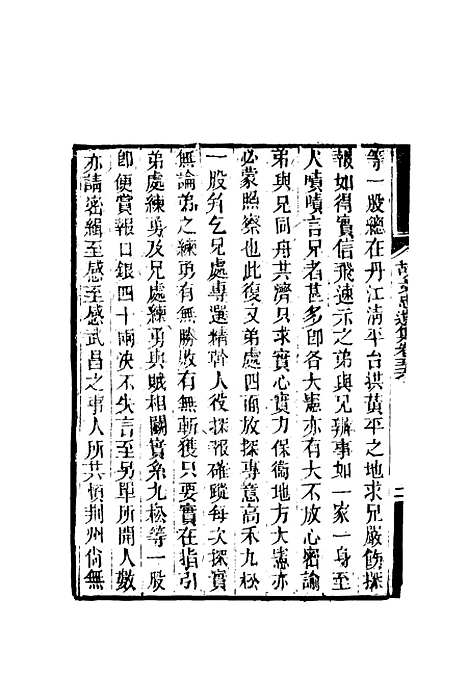 胡文忠遺集卷五
等一股總在丹江清平台拱黃平之地求兄嚴飭探
報如得實信飛速示之弟與兄辦事如一家一身至
人嘖嘖言兄者甚多即各大憲亦有大不放心密諭
弟與兄同舟共濟只求實心實力保衞地方大憲亦
必蒙照察也此復又弟處四面放探專意高禾九松
一股身乞兄處專選精幹人役探報確蹤每次探實
無論弟之練勇有無勝敗有無斬獲只要實在指引
弟處練勇及兄處練勇與賊相關實系九松等一股
即便賞報口銀四十兩決不失言至另單所開人數
亦請密緝至感至感武昌之事人所共憤荆州尚無